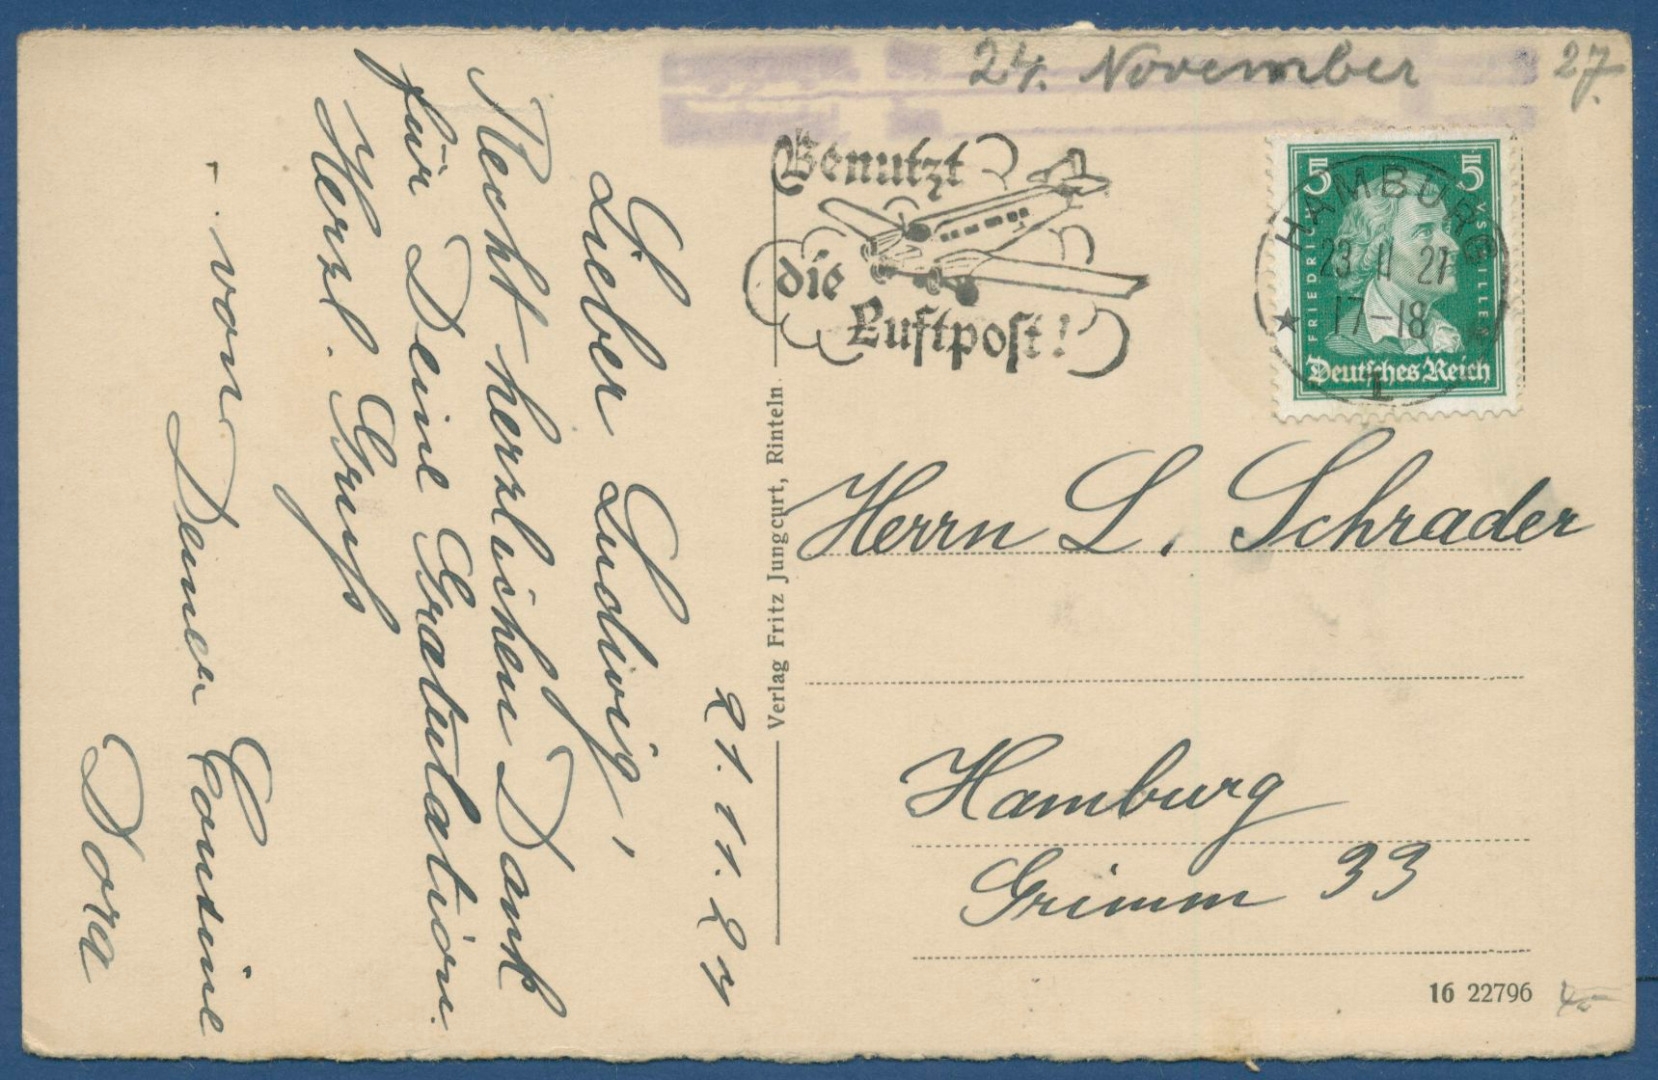 24. November 27.
Benutzt
die
Luftpost!
5 5
FRIEDRICH V. SCHILLER
Deutsches Reich
HAMBURG
23 11 27
17-18
★ 1
21.11.27
Lieber Ludwig,
Recht herzlichen Dank
für Deine Gratulation.
Herzl. Gruß
- von Deiner Cousine
Dora
Verlag Fritz Jungcurt, Rinteln
Herrn L. Schrader
Hamburg
Grimm 33
16 22796